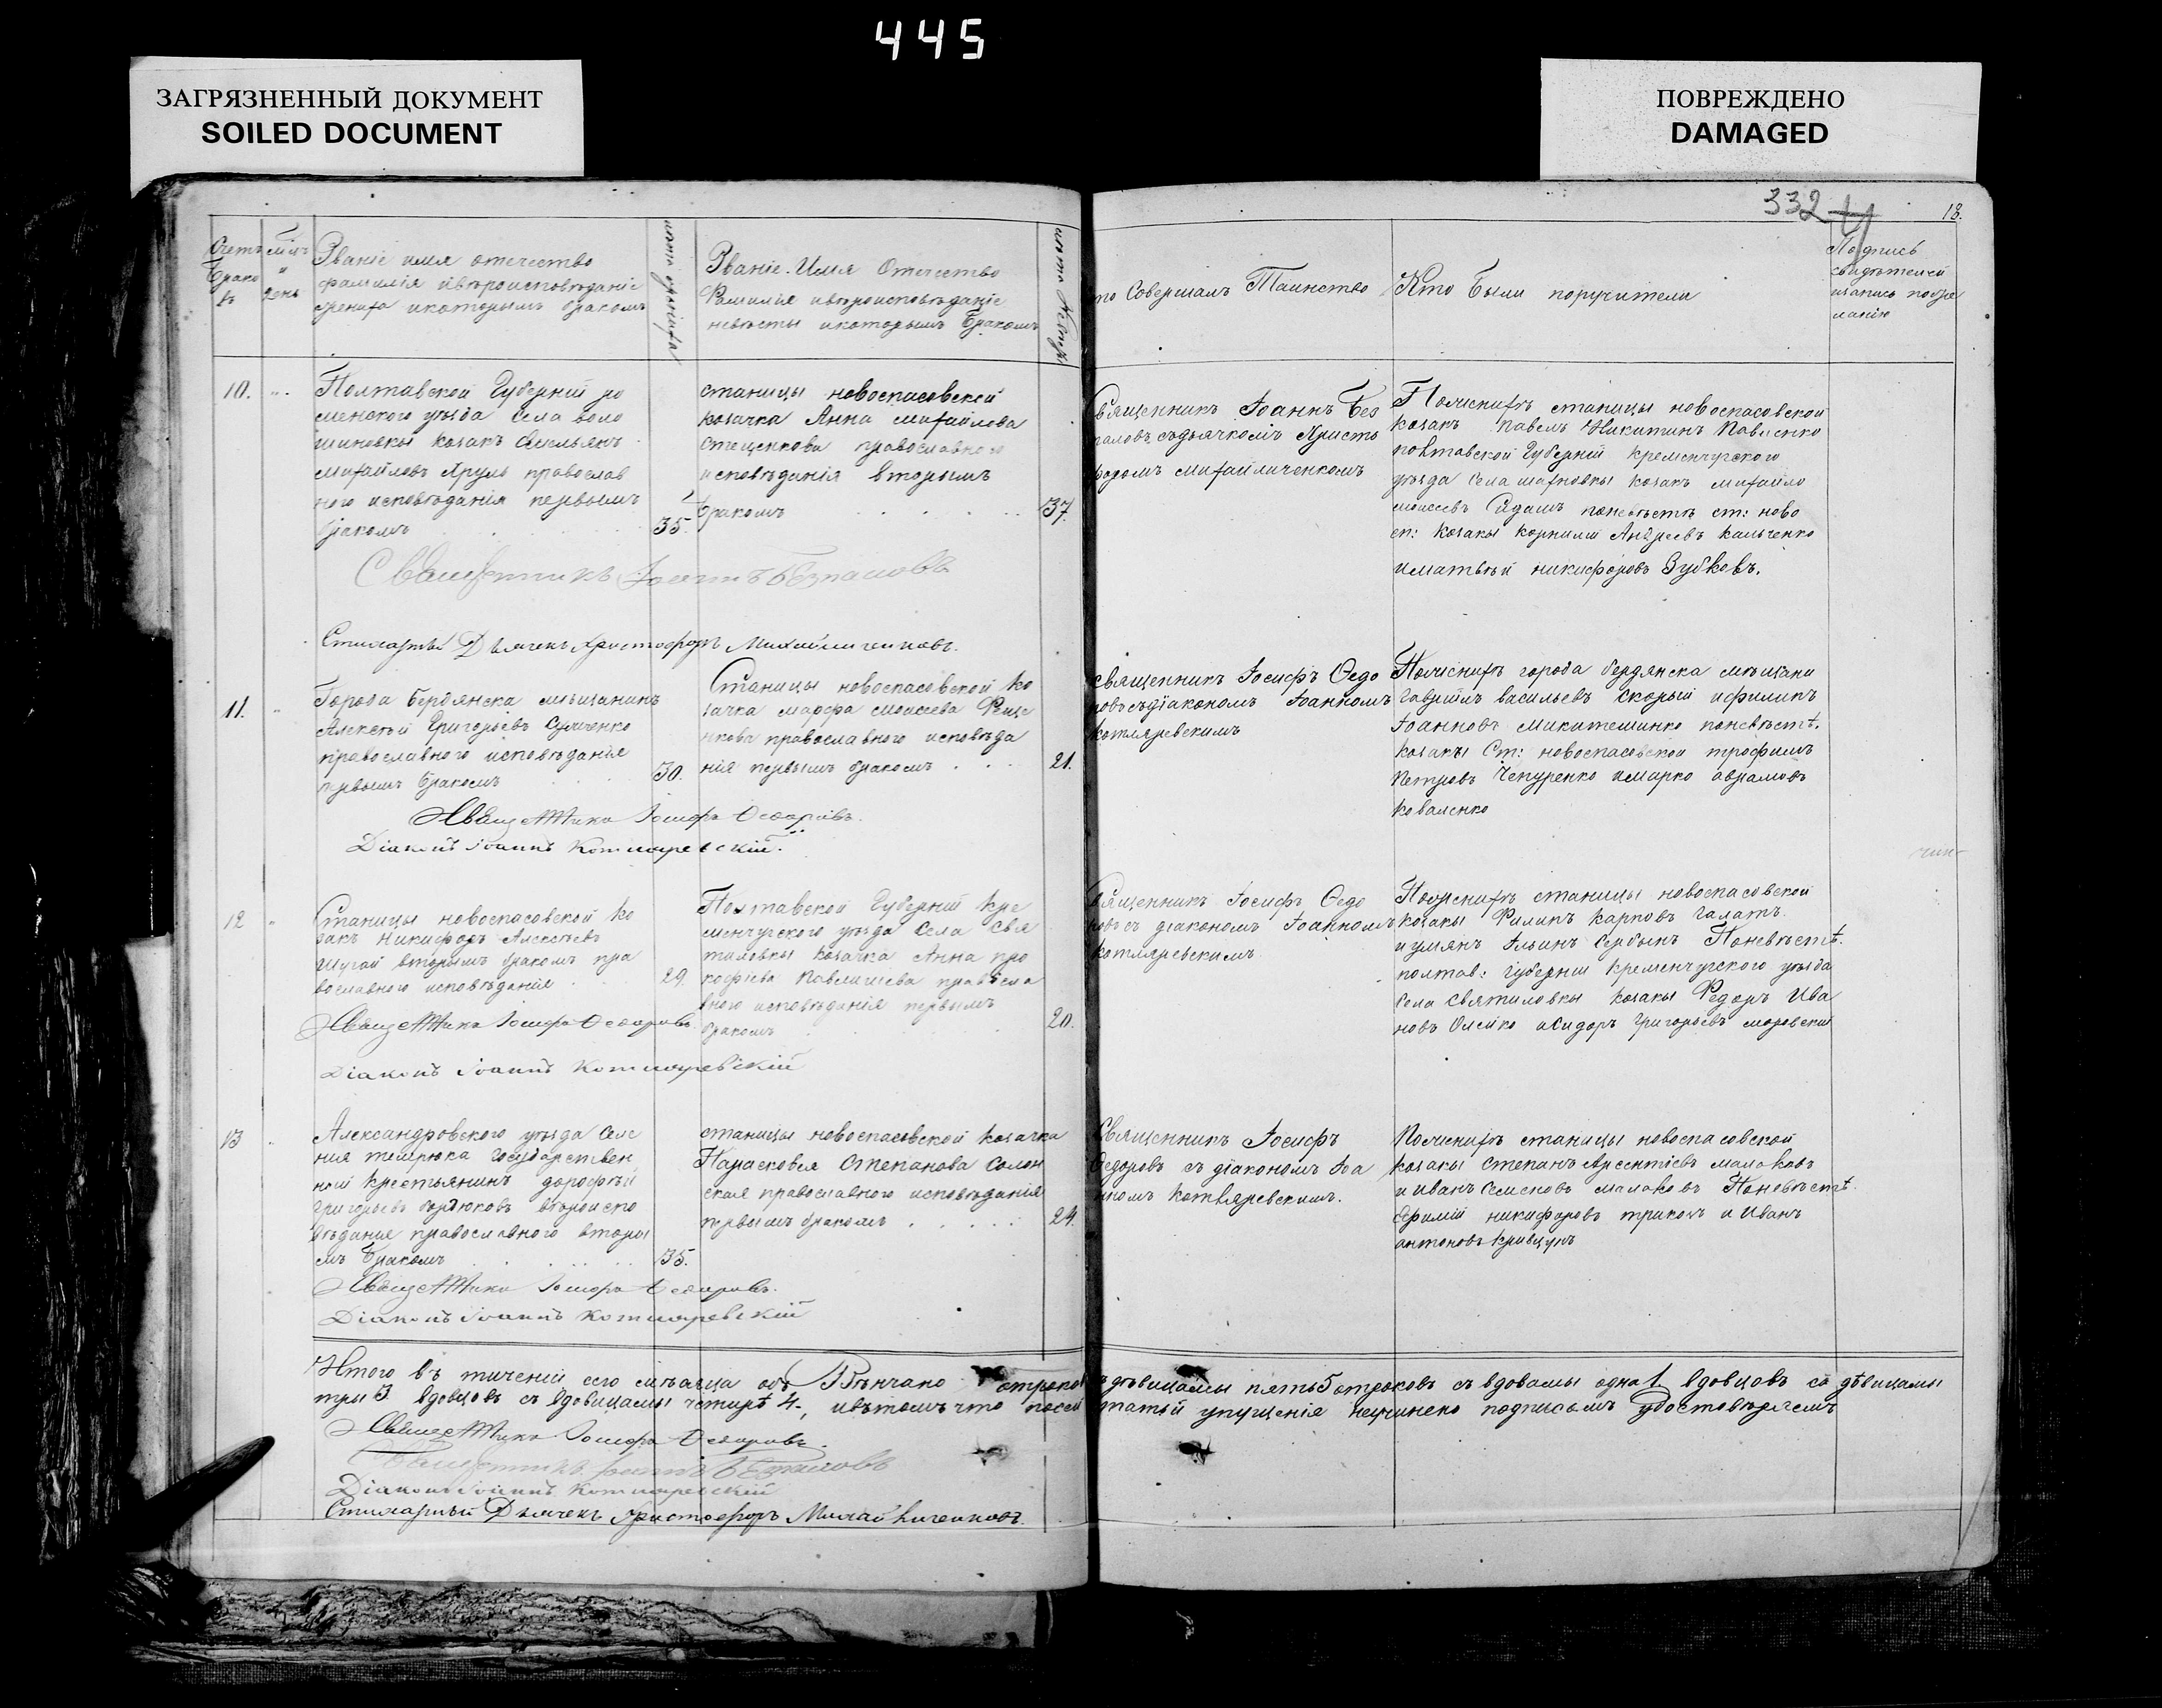 445
ЗАГРЯЗНЕННЫЙ ДОКУМЕНТ
SOILED DOCUMENT
ПОВРЕЖДЕНО
DAMAGED
332
18.
Счетъ
Брако
въ
день
Званіе имя отечество
фамилія ивѣроисповѣданіе
жениха икоторымъ бракомъ
лета жениха
Званіе. Имя Отечество
Фамилія ивѣроисповѣданіе
невѣсты икоторымъ Бракомъ
лета невѣсты
то Совершалъ Таинство
Кто Были поручители
Подпись
свидѣтелей
10.
Полтавской Губерніи ро
менского уѣзда Села воло
шиновки козакъ
михайловъ православ
ного исповѣданія первымъ
бракомъ
35.
станицы новоспасовской
козачка Анна михайлова
стеценкова православного
исповѣданія вторымъ
бракомъ
37.
Священникъ Іоаннъ Без
паловъ съдьячкомъ Христо
форомъ михайличенкомъ
По женихѣ станицы новоспасовской
козакъ павелъ Никитинъ Павленко
полтавской Губерніи кременчугского
уѣзда Села козакъ михайло
моисеевъ поневѣстѣ ст: ново
сп: козаки корнилій Андреевъ кальченко
иматвѣй никифоровъ Зубковъ.
Священникъ Іоаннъ Безпаловъ
Стихарный Дьячекъ Христофоръ Михайличенковъ.
11.
Города Бердянска мѣщанинъ
Алексѣй Григорьевъ
православного исповѣданія
первымъ бракомъ
30.
Станицы новоспасовской ко
зачка марфа моисеева
православного исповѣда
нія первымъ бракомъ
21.
священникъ Іосифъ Ѳедо
ровъ съдіакономъ Іоанномъ
котляревскимъ
По женихѣ города бердянска мѣщани
Гавріилъ васильевъ скорый ифилипъ
Іоанновъ Микитешинко поневѣстѣ.
козаки Ст: новоспасовской трофимъ
Петровъ Чепуренко имарко аврамовъ
коваленко
Священникъ Іосифъ Ѳедоровъ.
Діаконъ Іоаннъ Котляревскій.
12
Станицы новоспасовской ко
закъ Никифоръ Алексѣевъ
Шугай вторымъ бракомъ пра
вославного исповѣданія
29.
Полтавской Губерніи кре
менчугского уѣзда Села Свя
тиловки козачка Анна про
кофіева православ
ного исповѣданія первымъ
бракомъ
20.
Священникъ Іосифъ Ѳедо
ровъ съ діакономъ Іоанномъ
котляревскимъ
По женихѣ станицы новоспасовской
козаки Филипъ карповъ Галатъ
Ильинъ Сербинъ Поневѣстѣ.
полтав: губерніи Кременчугского уѣзда
Села Святиловки козаки Федоръ Ива
новъ Олейко исидоръ Григорьевъ
Священникъ Іосифъ Ѳедоровъ
Діаконъ Іоаннъ Котляревскій
13
Александровского уѣзда Селе
ния темрюка государствен
ный крестьянинъ дорофѣй
Григорьевъ вѣроиспо
вѣдания православного вторы
мъ бракомъ
35.
станицы новоспасовской козачка
Парасковея Степанова Солон
ская православного исповѣданія
первымъ бракомъ
24.
Священникъ Іосифъ
Ѳедоровъ съ діакономъ Іоа
нномъ котляревскимъ.
По женихѣ станицы новоспасовской
козаки Степанъ Арсентіевъ малаковъ
и Иванъ Семеновъ малаковъ Поневѣстѣ.
Ефимій никифоровъ и Иванъ
антоновъ кривцунъ
Священникъ Іосифъ Ѳедоровъ.
Діаконъ Іоаннъ Котляревскій
Итого въ тичении сего мѣсяца Вѣнчано отроковъ дѣвицами пять 5 отроковъ съ вдовами одна 1 вдовцовъ со дѣвицами
три 3 вдовцовъ съ вдовицами четыре 4, ивътомъ что посей статьи упущенія неучинено подписьмъ удостовѣряемъ
Священникъ Іосифъ Ѳедоровъ.
Священникъ Іоаннъ Безпаловъ
Діаконъ Іоаннъ Котляревскій
Стихарный Дьячекъ Христофоръ Михайличенковъ.